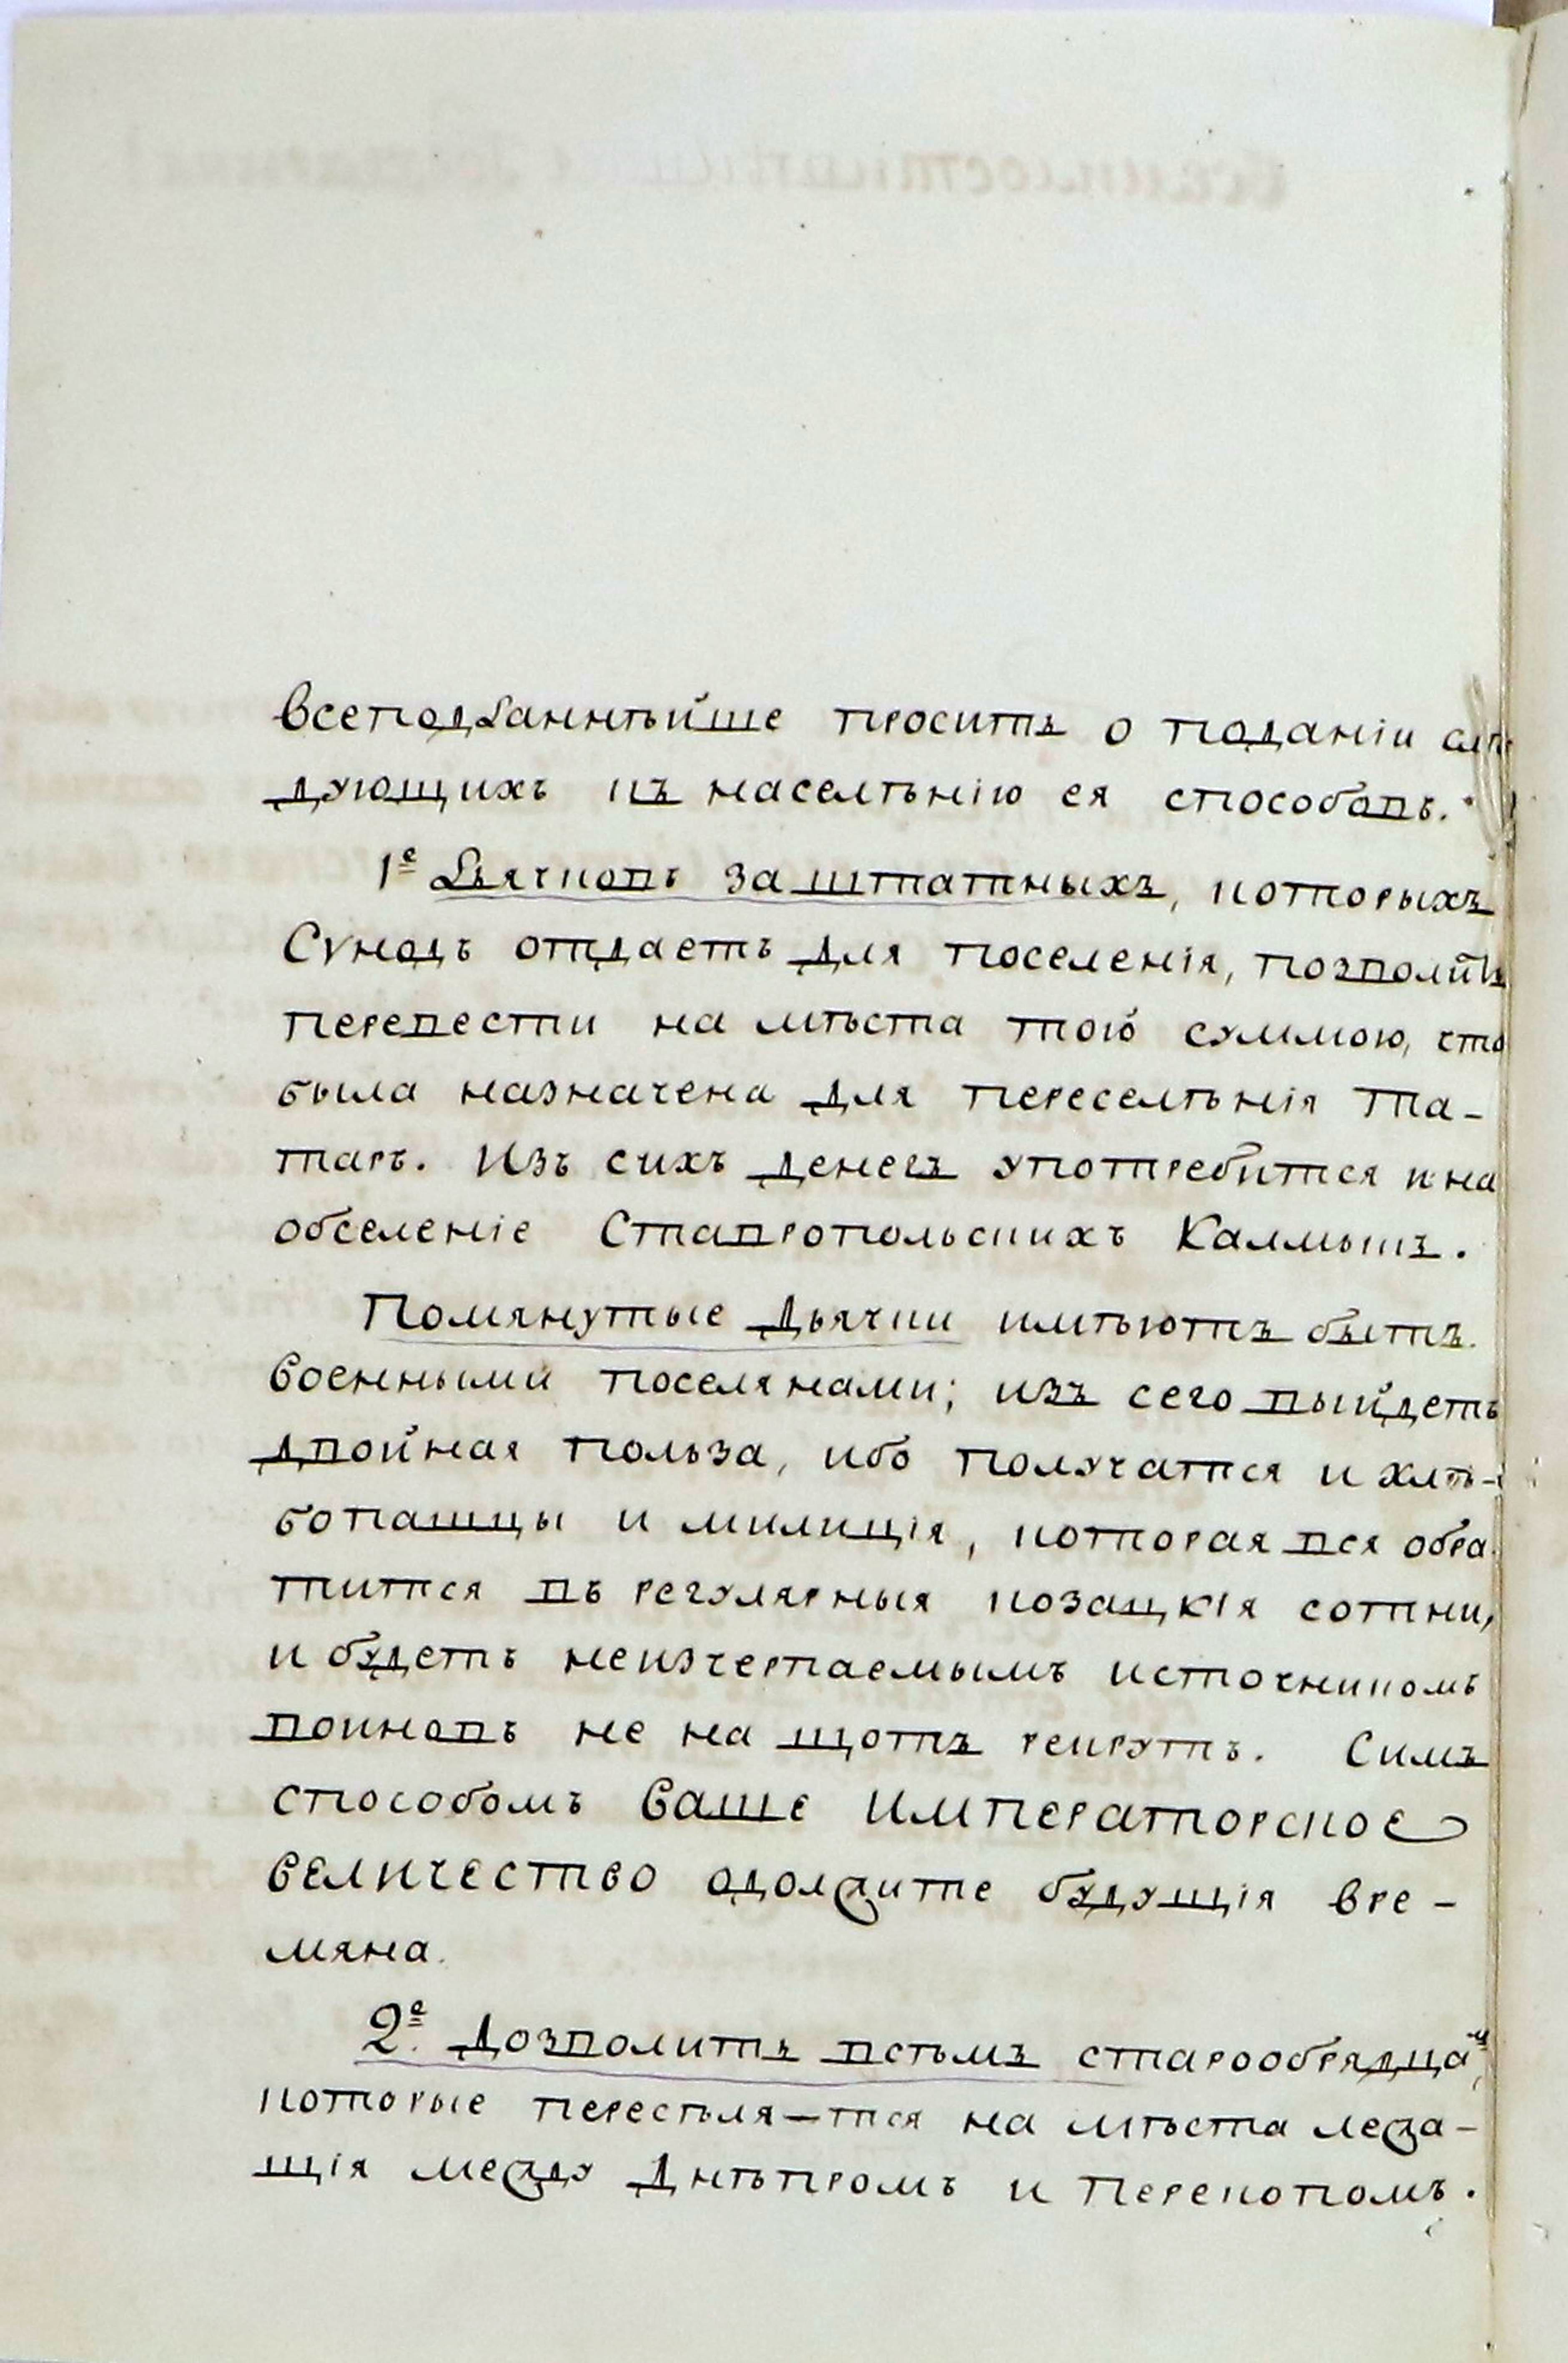 всеподданнѣйше просить о поданіи слѣ
дующихъ къ населѣнію ея способовъ.
1е Дьячковъ заштатныхъ, которыхъ
Сунодъ отдаетъ для поселенія, позволить
перевести на мѣста тою суммою, что
была назначена для переселѣнія та-
таръ. Изъ сихъ денегъ употребится и на
обселеніе Ставропольскихъ Калмыкъ.
Помянутые дьячки имѣютъ быть
военными поселянами; изъ сего выйдетъ
двойная польза, ибо получатся и хлѣ-
бопашцы и милиція, которая вся обра
тится въ регулярныя козацкія сотни,
и будетъ неизчерпаемымъ источникомъ
воиновъ не на щотъ рекрутъ. Симъ
способомъ Ваше Императорское
Величество одолжите будущія вре-
мяна.
2е. Дозволить всѣмъ старообрядцамъ,
которые переселя-тся на мѣста лежа-
щія между Днѣпромъ и Перекопомъ.